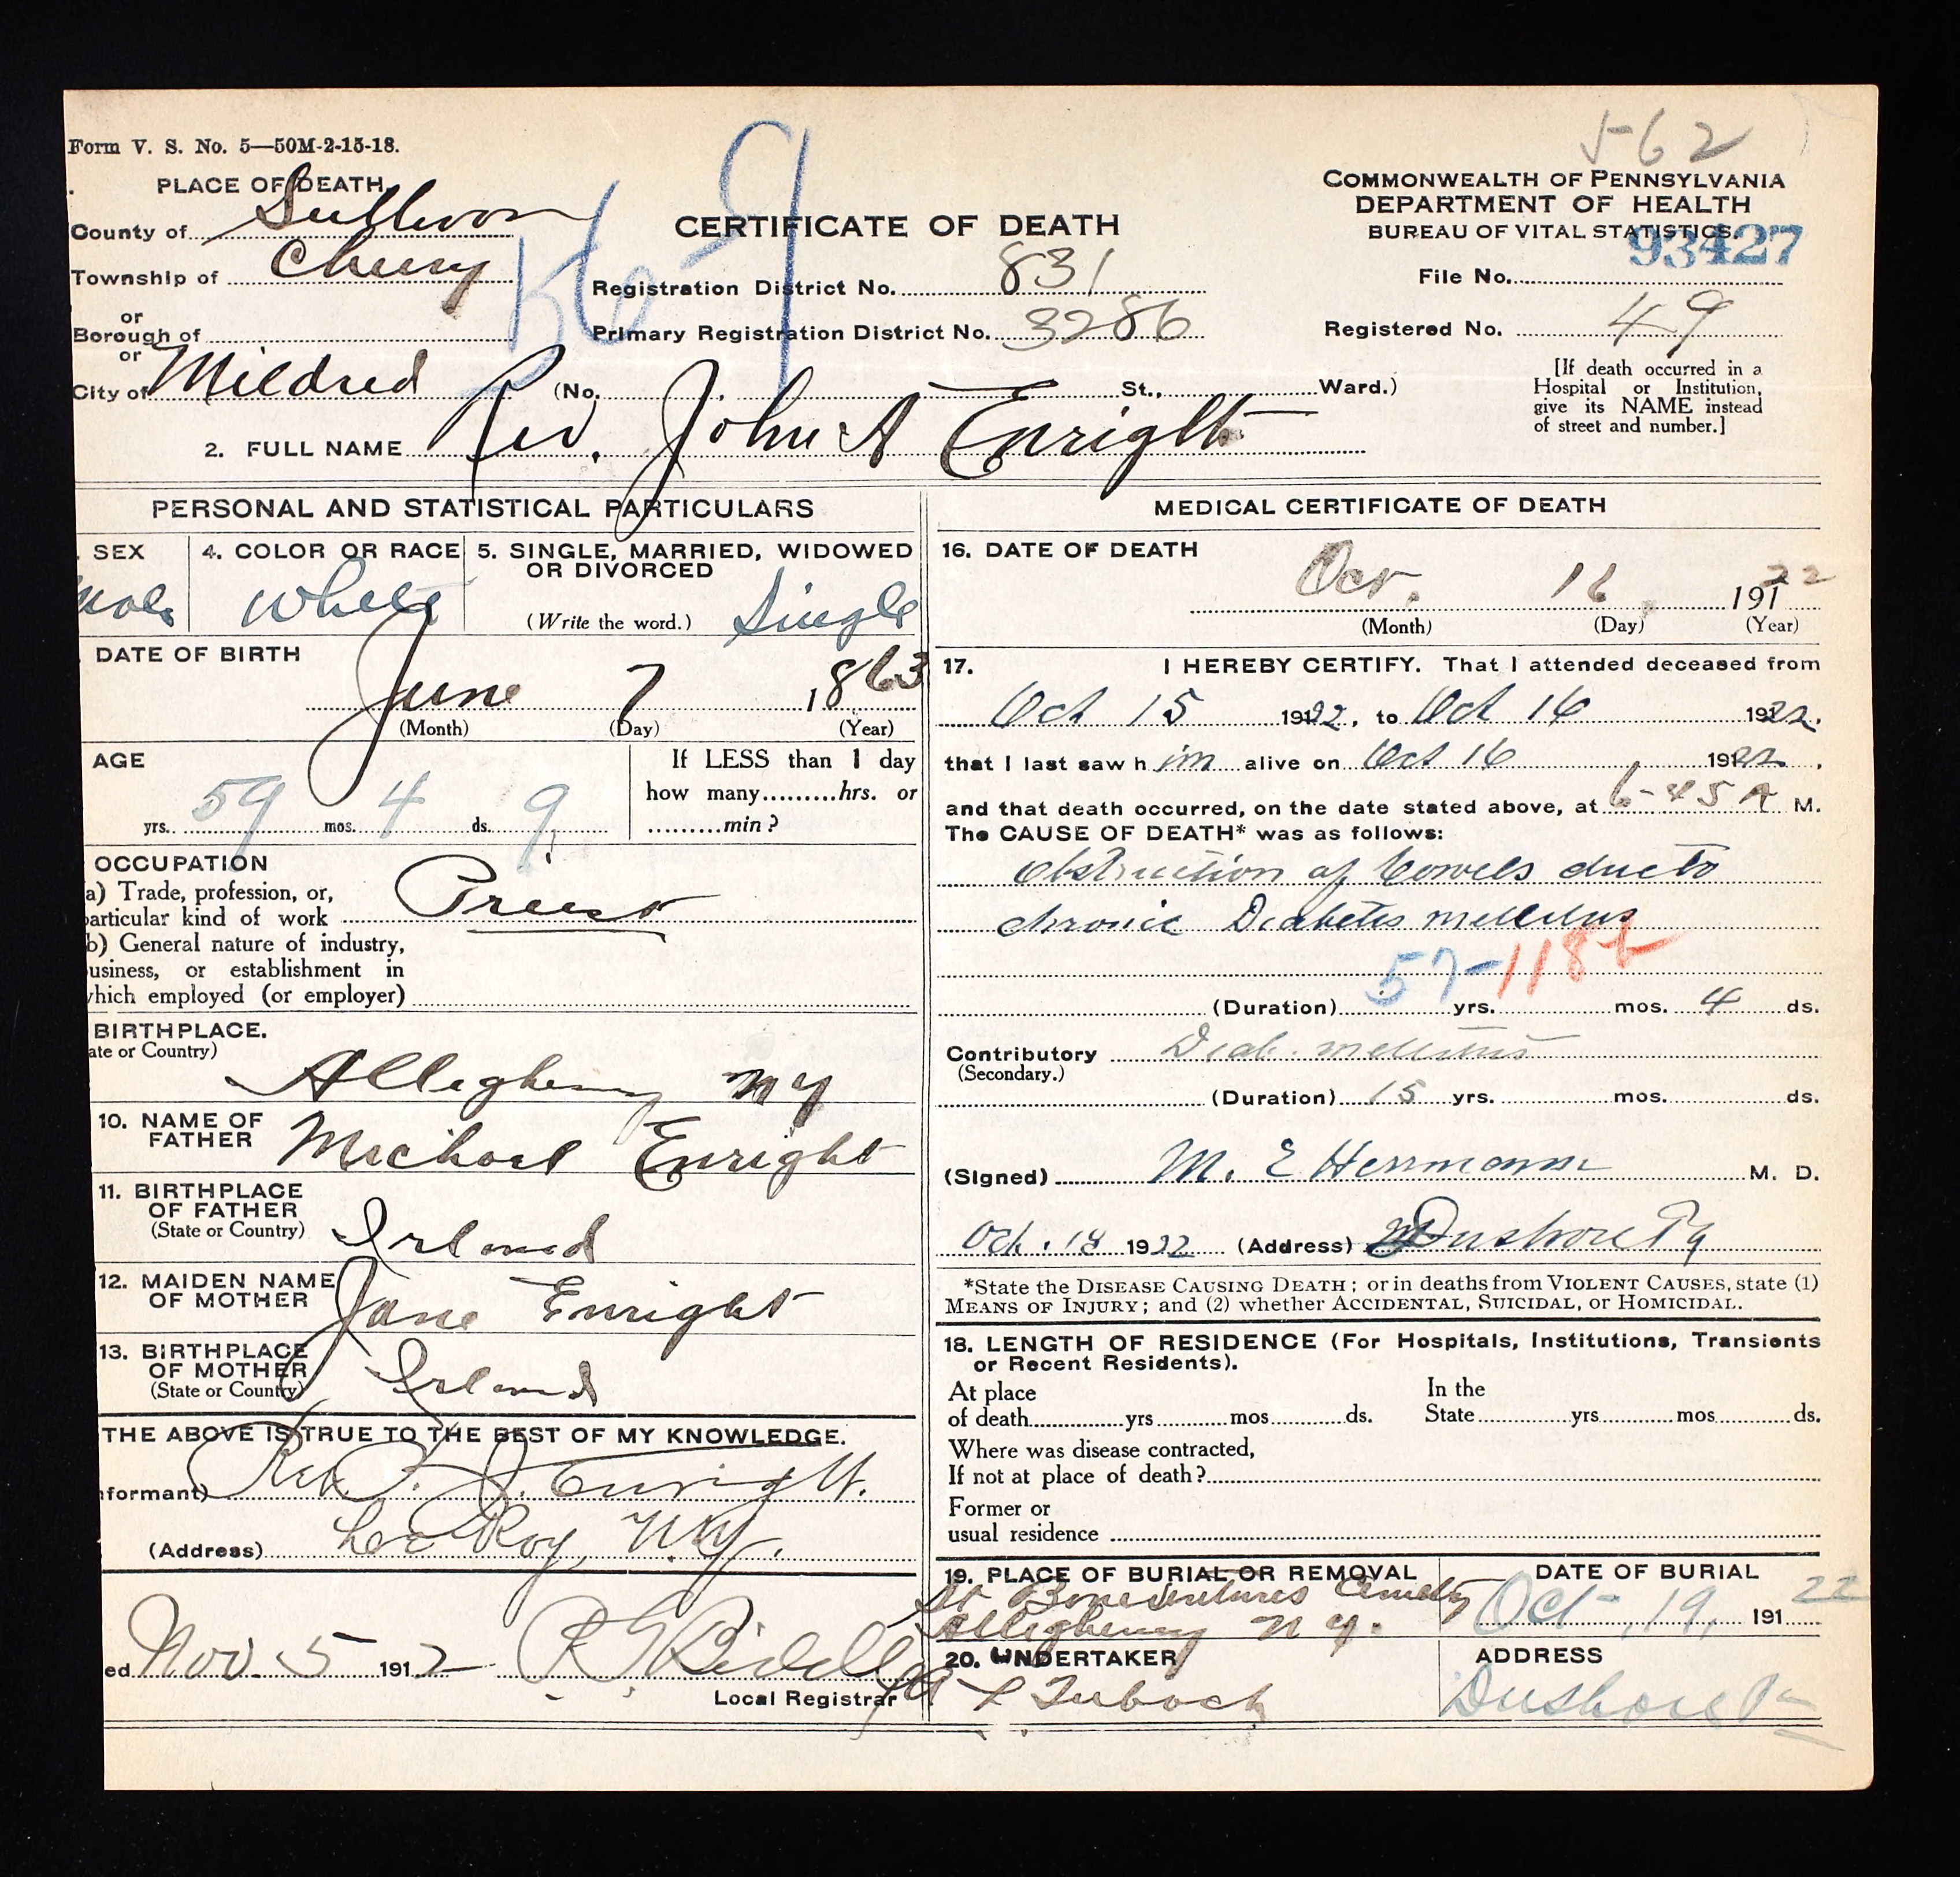 Form V. S. No. 5—50M-2-15-18.
562
PLACE OF DEATH
County of Sullivan
Township of Cherry
or
Borough of
or
City of Mildred
(No. St., Ward.)
CERTIFICATE OF DEATH
Registration District No. 831
Primary Registration District No. 3286
COMMONWEALTH OF PENNSYLVANIA
DEPARTMENT OF HEALTH
BUREAU OF VITAL STATISTICS.
93427
File No.
Registered No. 49
[If death occurred in a
Hospital or Institution,
give its NAME instead
of street and number.]
2. FULL NAME Rev. John A Enright
PERSONAL AND STATISTICAL PARTICULARS
. SEX
male
4. COLOR OR RACE
White
5. SINGLE, MARRIED, WIDOWED
OR DIVORCED
(Write the word.) Single
DATE OF BIRTH
June 7 1863
(Month) (Day) (Year)
AGE
59 yrs. 4 mos. 9 ds.
If LESS than 1 day
how many.........hrs. or
.........min?
OCCUPATION
a) Trade, profession, or,
particular kind of work Priest
b) General nature of industry,
usiness, or establishment in
which employed (or employer)
BIRTHPLACE.
ate or Country)
Allegheny N Y
10. NAME OF
FATHER
Michael Enright
11. BIRTHPLACE
OF FATHER
(State or Country)
Irland
12. MAIDEN NAME
OF MOTHER
Jane Enright
13. BIRTHPLACE
OF MOTHER
(State or Country)
Irland
THE ABOVE IS TRUE TO THE BEST OF MY KNOWLEDGE.
nformant) Rev. P. J. Enright.
(Address) Lee Roy, N.Y.
ed Nov. 5 1912
Local Registrar
MEDICAL CERTIFICATE OF DEATH
16. DATE OF DEATH
Oct. 16 191 22
(Month) (Day) (Year)
17. I HEREBY CERTIFY. That I attended deceased from
Oct 15 1922, to Oct 16 1922.
that I last saw h im alive on Oct 16 1922.
and that death occurred, on the date stated above, at 6-45 A M.
The CAUSE OF DEATH* was as follows:
Obstruction of bowels due to
chronic Diabetes mellitus
57-118b
(Duration) yrs. mos. 4 ds.
Contributory Diab. mellitus
(Secondary.)
(Duration) 15 yrs. mos. ds.
(Signed) M. E Herrmann M. D.
Oct. 18 1922 (Address) Dushore Pa
*State the DISEASE CAUSING DEATH; or in deaths from VIOLENT CAUSES, state (1)
MEANS OF INJURY; and (2) whether ACCIDENTAL, SUICIDAL, or HOMICIDAL.
18. LENGTH OF RESIDENCE (For Hospitals, Institutions, Transients
or Recent Residents).
At place
of death yrs mos ds.
In the
State yrs mos ds.
Where was disease contracted,
If not at place of death?
Former or
usual residence
19. PLACE OF BURIAL OR REMOVAL
St Bonaventures Cemety
Allegheny N Y.
DATE OF BURIAL
Oct-, 19, 191 22
20. UNDERTAKER
ADDRESS
Dushore Pa